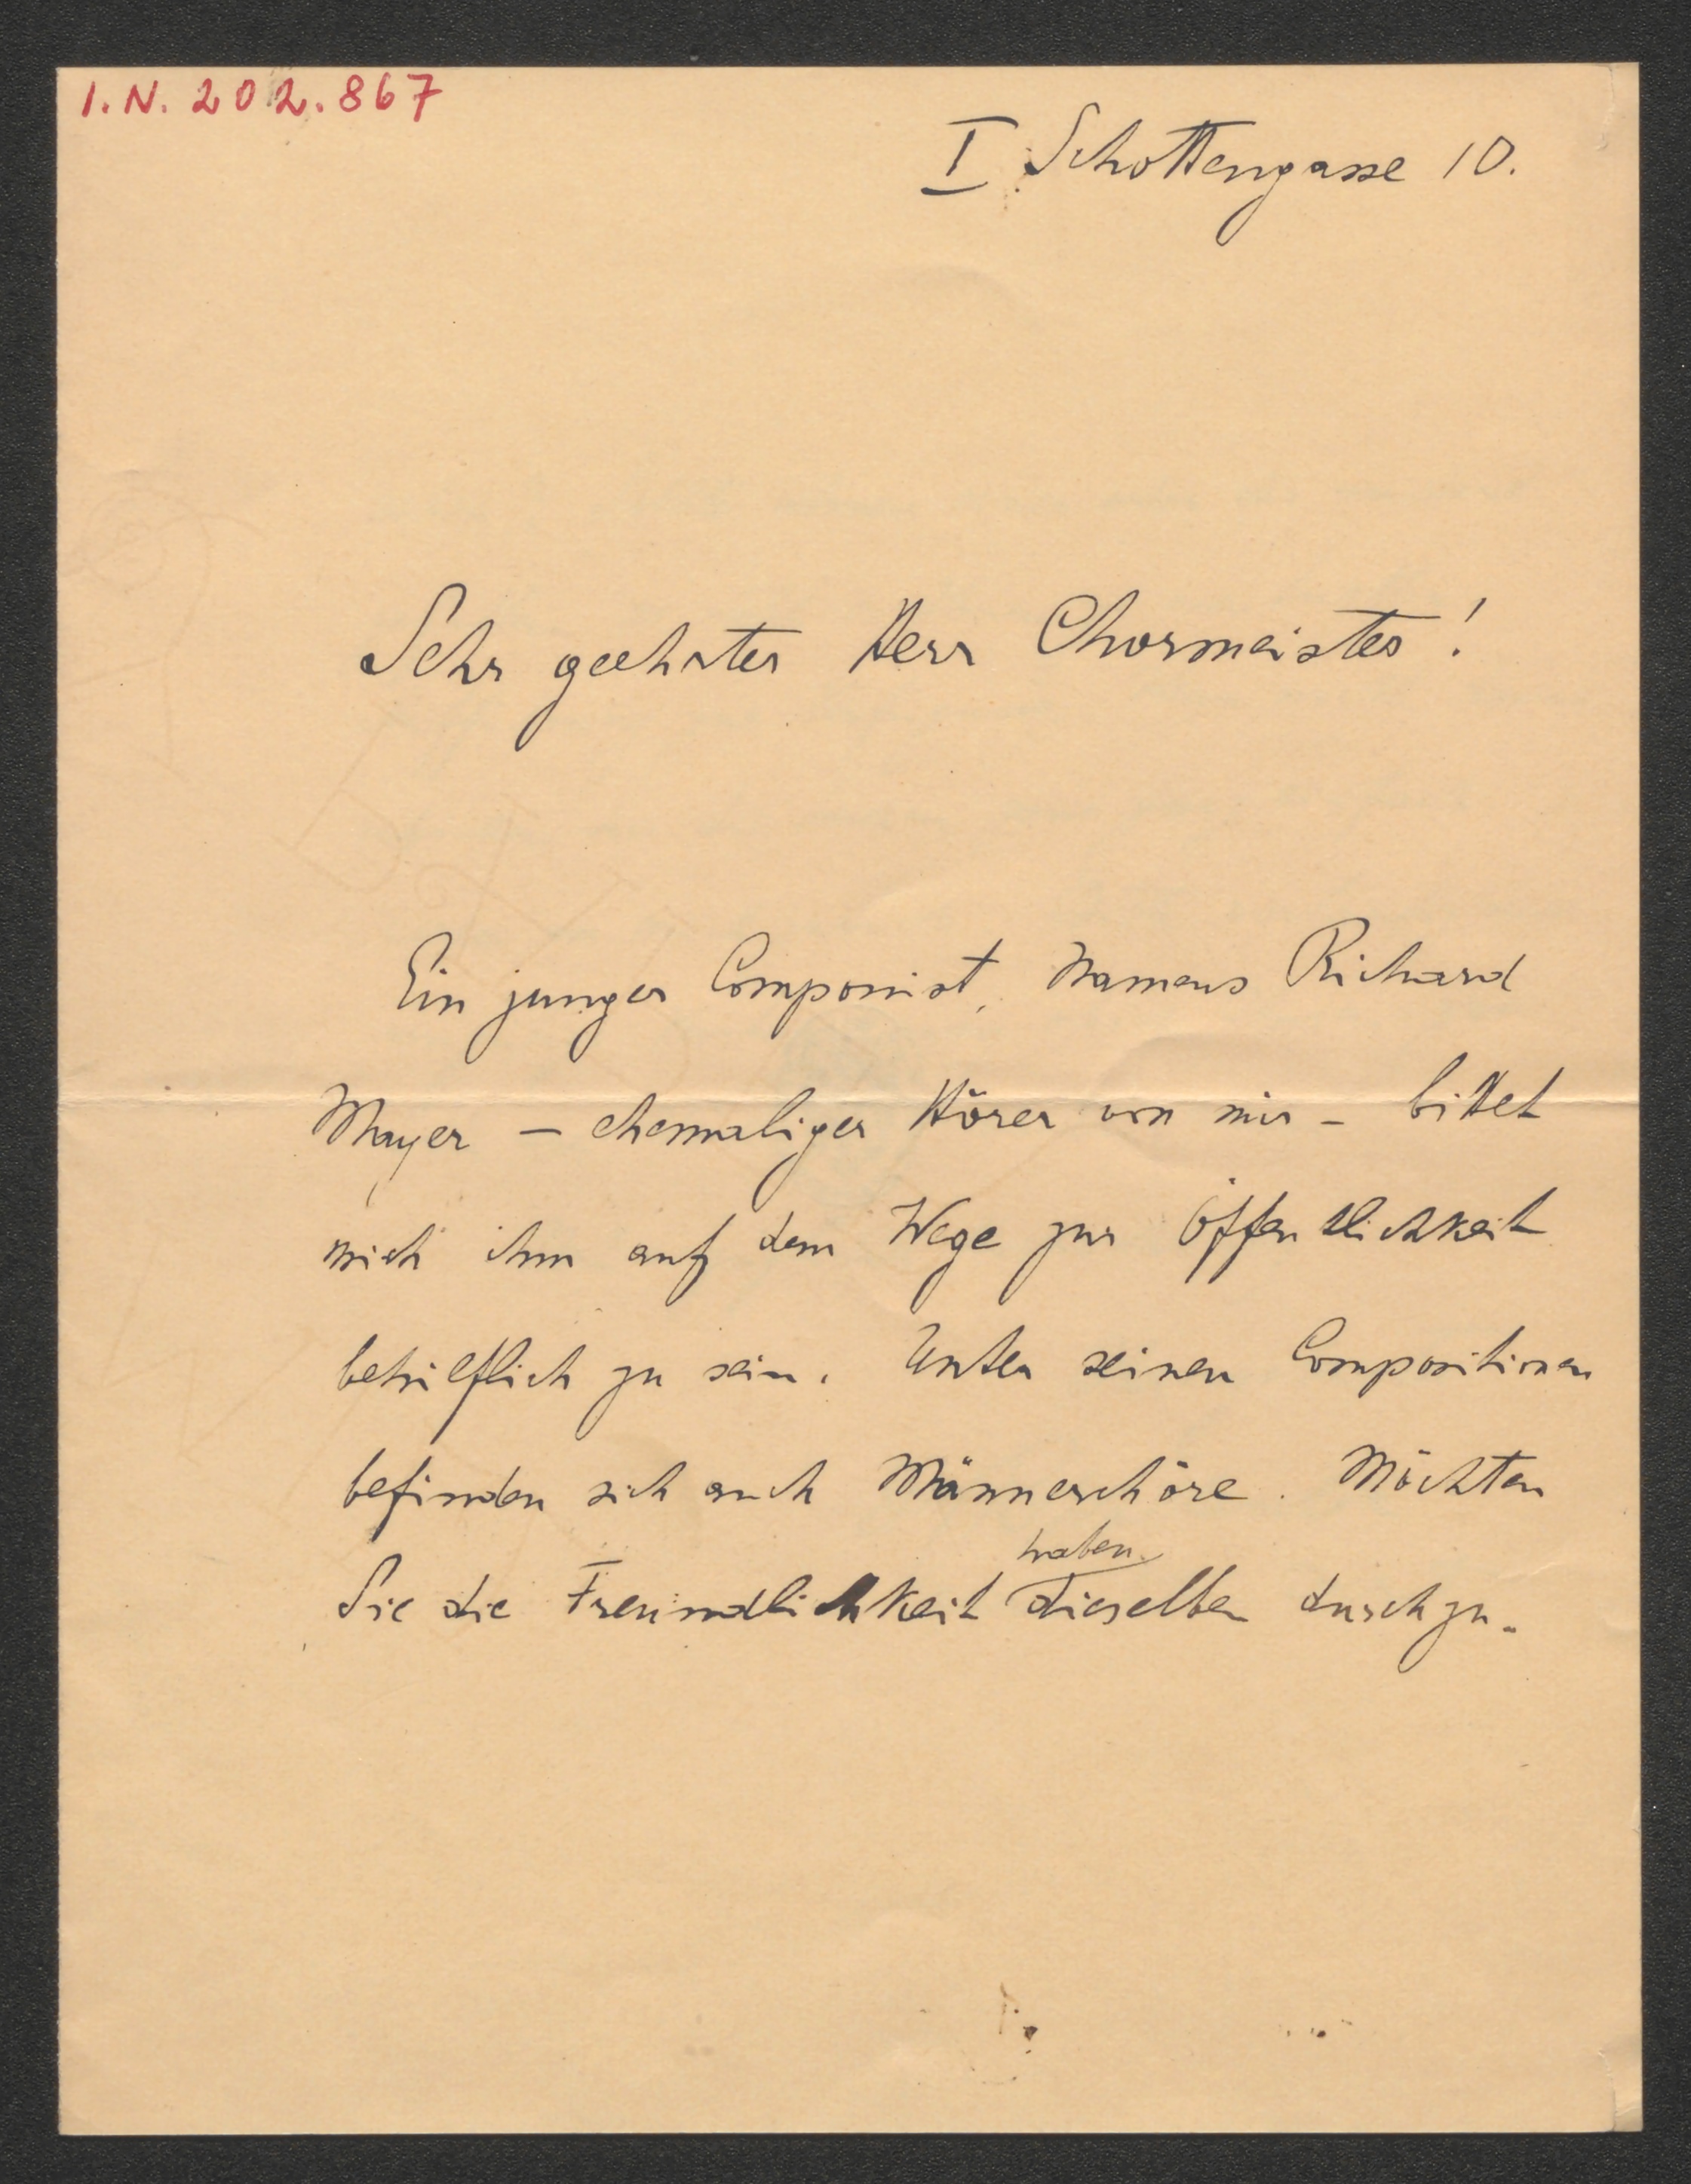 I.N. 202.867
I Schottengasse 10.
Sehr geehrter Herr Chormeister!
Ein junger Componist, Namens Richard
Mayer – ehemaliger Hörer von mir – bittet
mich ihm auf dem Wege zur Öffentlichkeit
behilflich zu sein. Unter seinen Compositionen
befinden sich auch Männerchöre. Möchten
haben
Sie die Freundlichkeit dieselben durchzu-